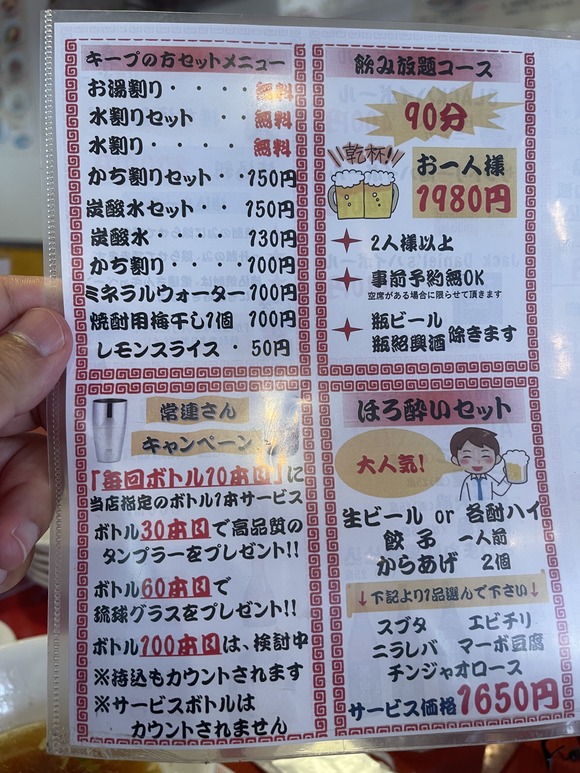 キープの方セットメニュー
お湯割り・・・・・無料
水割りセット・・・無料
水割り・・・・・無料
かち割りセット・・150円
炭酸水セット・・150円
炭酸水・・・・130円
かち割り・・・・100円
ミネラルウォーター100円
焼酎用梅干し1個 100円
レモンスライス・50円
飲み放題コース
90分
乾杯!!
お一人様
1980円
2人様以上
事前予約無OK
空席がある場合に限らせて頂きます
瓶ビール
瓶紹興酒 除きます
常連さん
キャンペーン
「毎回ボトル10本目」に
当店指定のボトル1本サービス
ボトル30本目で高品質の
タンブラーをプレゼント!!
ボトル60本目で
琉球グラスをプレゼント!!
ボトル100本目は、検討中
※持込もカウントされます
※サービスボトルは
カウントされません
ほろ酔いセット
大人気!
生ビール or 各酎ハイ
餃子 一人前
からあげ 2個
↓下記より1品選んで下さい↓
スブタ エビチリ
ニラレバ マーボ豆腐
チンジャオロース
サービス価格1650円